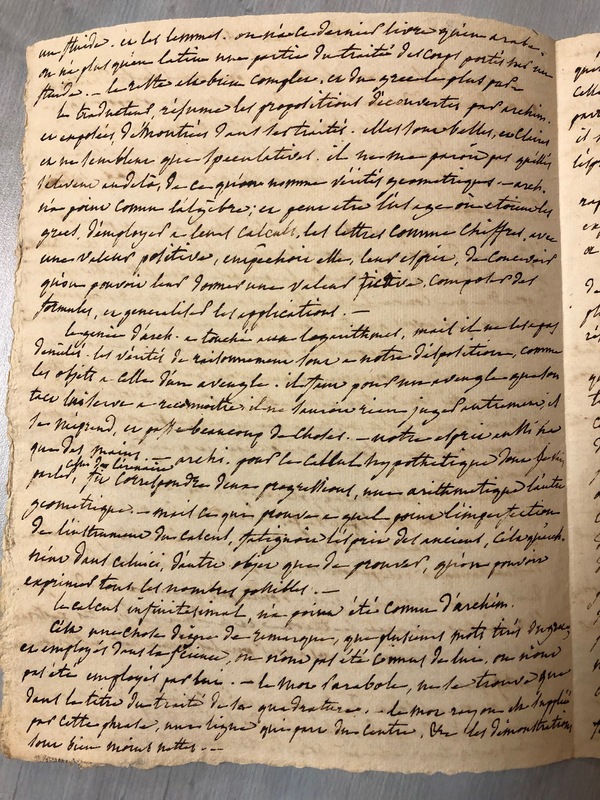 un fluide. et les lemmes. on n'a ce dernier livre qu'en arabe.
on n'a plus qu'en latin une partie du traité des corps portés sur un
fluide. - le reste est bien complet, et du grec le plus pur.
Le traducteur, résume les propositions découvertes par archim.
et exposées, démontrées dans ses traités. elles sont belles, et claires
et ne semblent que speculatives. il ne me paroit pas qu'elles
s'élèvent au delà, de ce qu'on nomme vérités geometriques. - arch.
n'a point connu l'algèbre; et peut etre l'usage où etoient les
grecs, d'employer a leurs calculs, les lettres comme chiffres, avec
une valeur positive, empêchoit elle, leur esprit, de concevoir
qu'on pouvoit leur donner une valeur fictive, composer des
formules, et generaliser les applications. -
le genie d'arch. a touché aux logarithmes, mais il ne les a pas
devinés. les vérités de raisonnement sont a notre disposition, comme
les objets a celle d'un aveugle. il faut pour un aveugle que son
tact lui serve a reconnoitre il ne sauroit rien juger autrement, il
se méprend, et passe beaucoup de choses. - notre esprit aussi n'a
que des mains. - archi. pour le calcul hypothetique dont je viens
parler, celui de l'arénaire
fit correspondre deux progressions, une arithmetique l'autre
geometrique. - mais ce qui prouve a quel point l'imperfection
de l'instrument du calcul, fatiguoit l'esprit des anciens, c'est qu'arch.
n'eut dans celui ci, d'autre objet que de prouver, qu'on pouvoit
exprimer tous les nombres possibles. -
le calcul infinitesimal, n'a point été connu d'archim.
C'est une chose digne de remarque, que plusieurs mots tirés du grec,
et employés dans la science, ou n'ont pas été connus de lui, ou n'ont
pas été employés par lui. - le mot parabole, ne se trouve que
dans le titre du traité de sa quadrature. - le mot rayon est suppléé
par cette phrase, une ligne qui part du centre, &c les démonstrations
sont bien moins nettes. - -